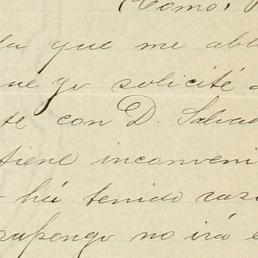 (Como,
la que me abl
que yo solicité
te con D. Salvad
tiene inconveni
ha tenido raz
supongo no irá e